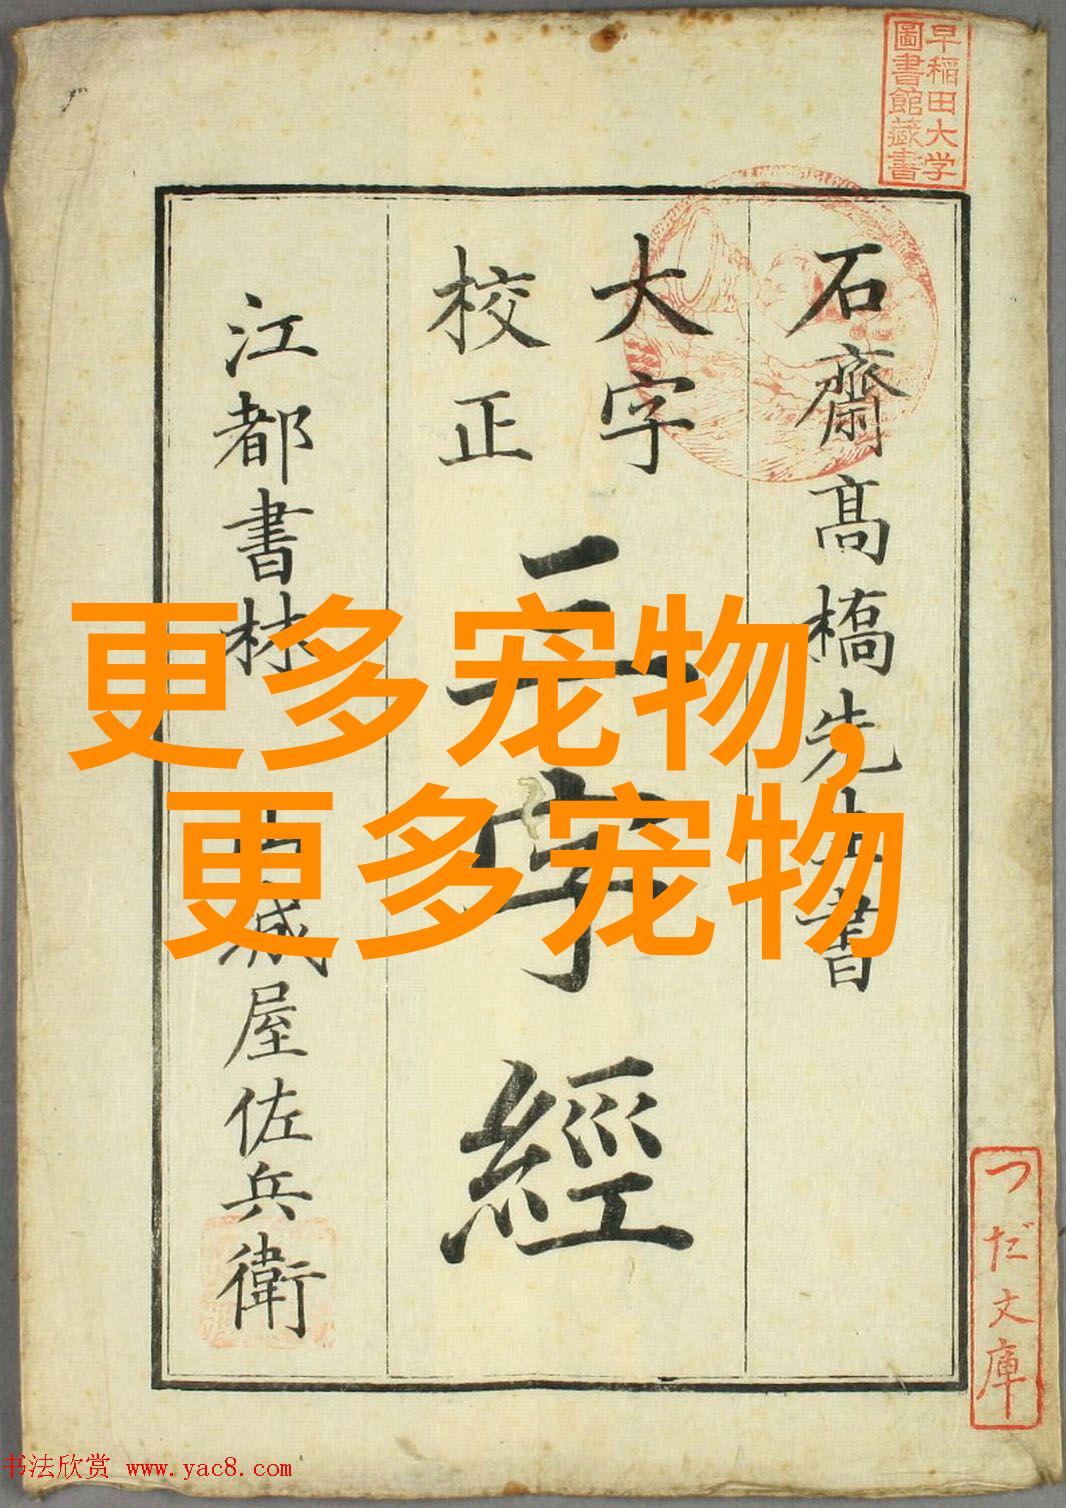 早稲田大学
圖書館藏書
石齋髙橋先生書
大字
校正
三字經
江都書林
城屋佐兵衛
更多宠物,
更多宠物
つだ文庫
书法欣赏 www.yac8.com